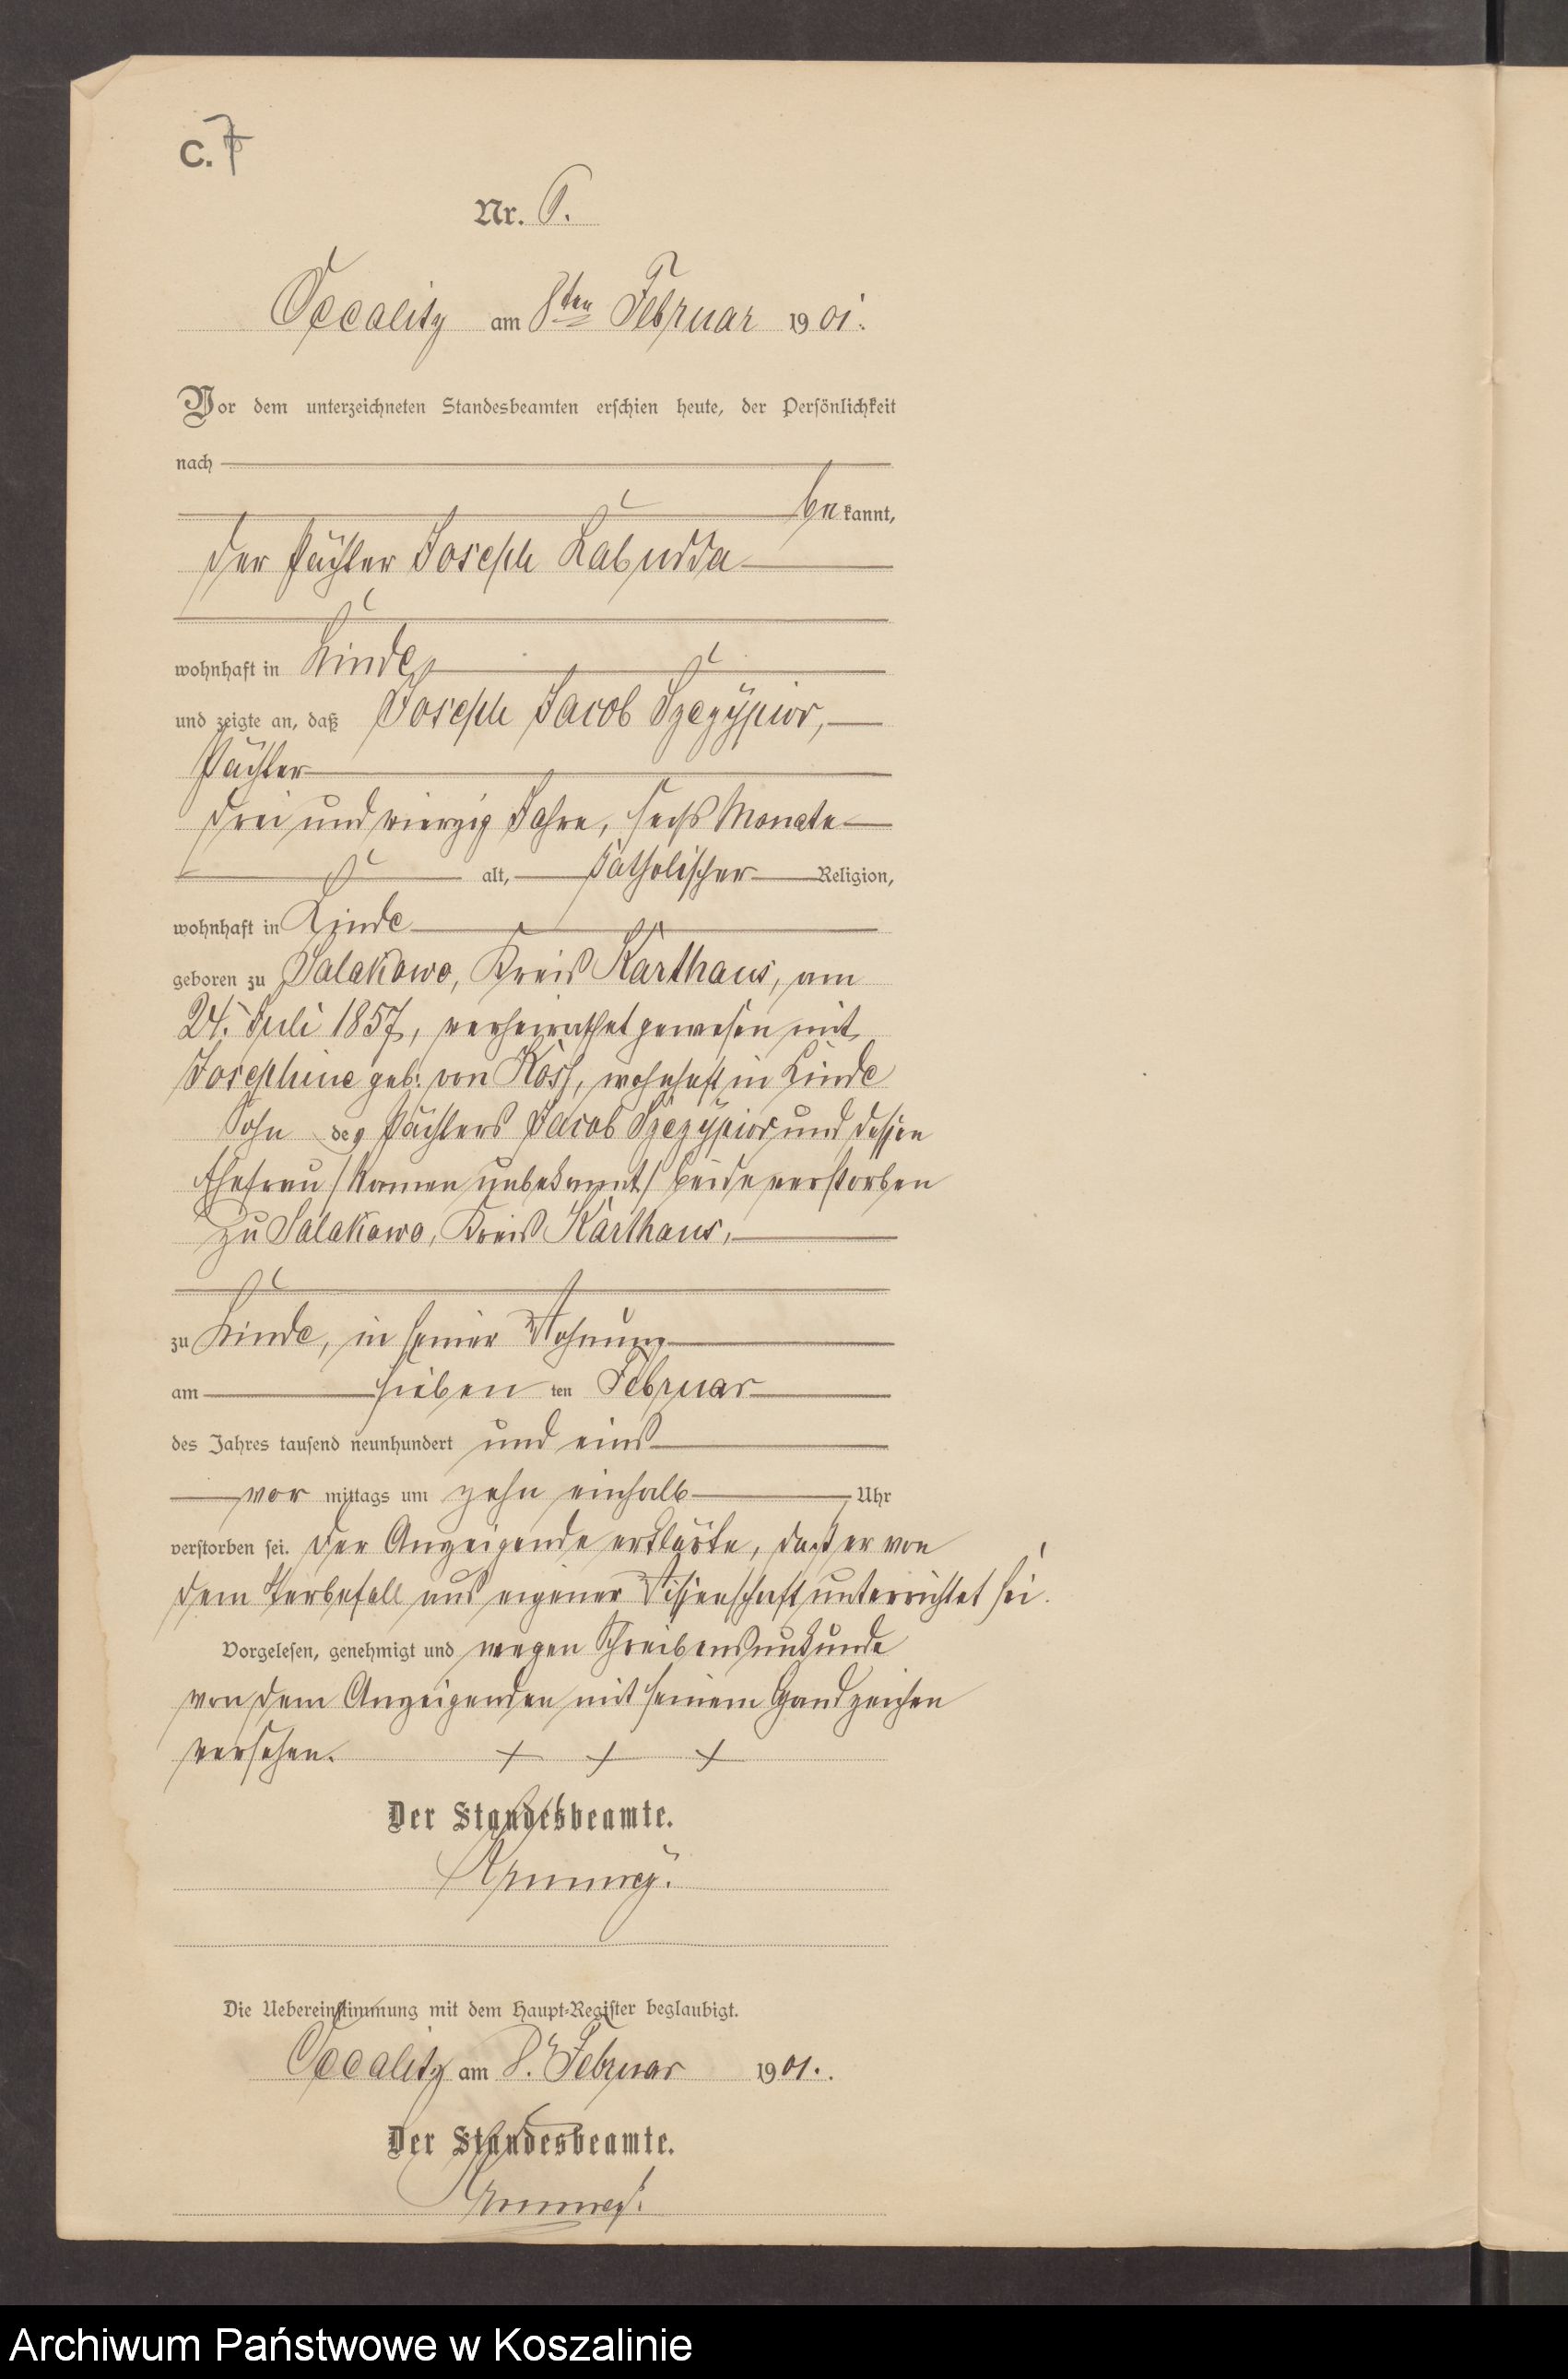 C. 7
Nr. 6.
Occalitz am 8ten Februar 1901.
Vor dem unterzeichneten Standesbeamten erschien heute, der Persönlichkeit
nach
bekannt,
der Pächter Joseph Labudda
wohnhaft in Linde
und zeigte an, daß Joseph Jacob Szczÿpior,
Pächter
drei und vierzig Jahre, sechs Monate
alt, katholischer Religion,
wohnhaft in Linde
geboren zu Salakowo, Kreis Karthaus, am
24. Juli 1857, verheirathet gewesen mit
Josephine geb. von Koss, wohnhaft in Linde
Sohn des Pächters Jacob Szczÿpior und dessen
Ehefrau /Namen unbekannt/ beide verstorben
zu Salakowo, Kreis Karthaus,
zu Linde, in seiner Wohnung
am sieben ten Februar
des Jahres tausend neunhundert und eins
vor mittags um zehn einhalb Uhr
verstorben sei. Der Anzeigende erklärte, daß er von
dem Sterbefall aus eigener Wissenschaft unterrichtet sei.
Vorgelesen, genehmigt und wegen Schreibensunkunde
von dem Anzeigenden mit seinem Handzeichen
versehen. + + +
Der Standesbeamte.
Die Uebereinstimmung mit dem Haupt-Register beglaubigt.
Occalitz am 8. Februar 1901.
Der Standesbeamte.
Archiwum Państwowe w Koszalinie